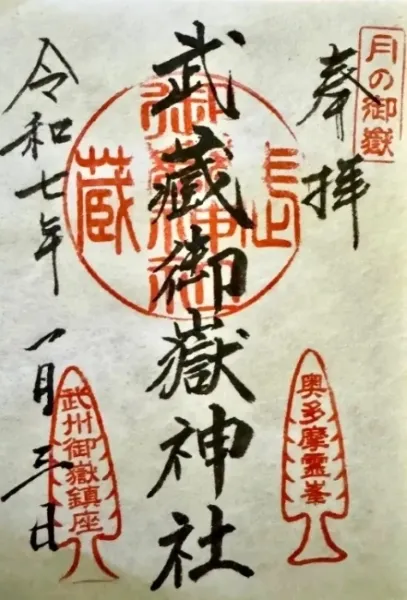 月の御嶽
奉拝
武蔵御嶽神社
令和七年一月三日
奥多摩霊峯
武州御嶽鎮座
武蔵御嶽神社